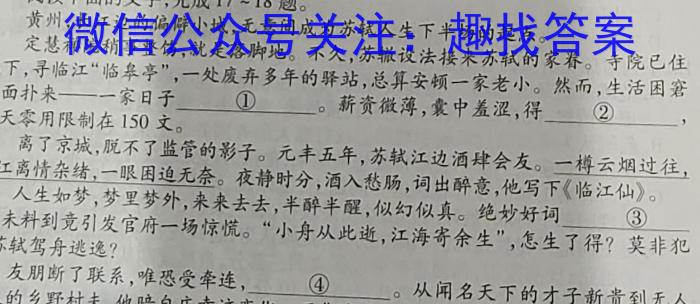 阅读下面的文字,完成17~18题。
微信公众号关注:趣找答案
黄州,
定慧
下,寻临江“临皋亭”,一处废弃多年的驿站,总算安顿一家老小。然而,生活困窘
面扑来——一家日子①。薪资微薄,囊中羞涩,得②
天零用限制在150文。
离了京城,脱不了监管的影子。元丰五年,苏轼江边酒肆会友。一樽云烟过往,
江离情杂绪,一眼困迫无奈。夜静时分,酒入愁肠,词出醉意,他写下《临江仙》。
人生如梦,梦里梦外,来来去去,半醉半醒,似幻似真。绝妙好词③
未料到竟引发官府一场惊慌。“小舟从此逝,江海寄余生”,怎生了得?莫非犯
苏轼驾舟逃逸?
友朋断了联系,唯恐受牵连,④。从闻名天下的才子新贵到无人
的乡野村夫